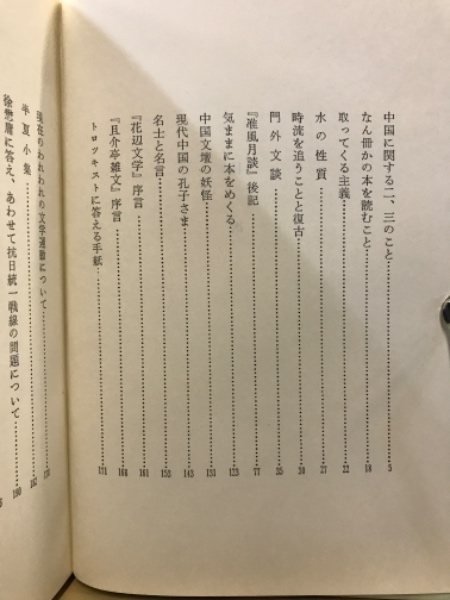 中国に関する二、三のこと……5
なん冊かの本を読むこと……18
取ってくる主義……22
水の性質……27
時流を追うことと復古……30
門外文談……35
『准風月談』後記……77
気ままに本をめくる……123
中国文壇の妖怪……131
現代中国の孔子さま……143
名士と名言……155
『花辺文学』序言……161
『且介亭雑文』序言……166
トロツキストに答える手紙……171
現在のわれわれの文学運動について
半夏小集……182
徐懋庸に答え、あわせて抗日統一戦線の問題について……190